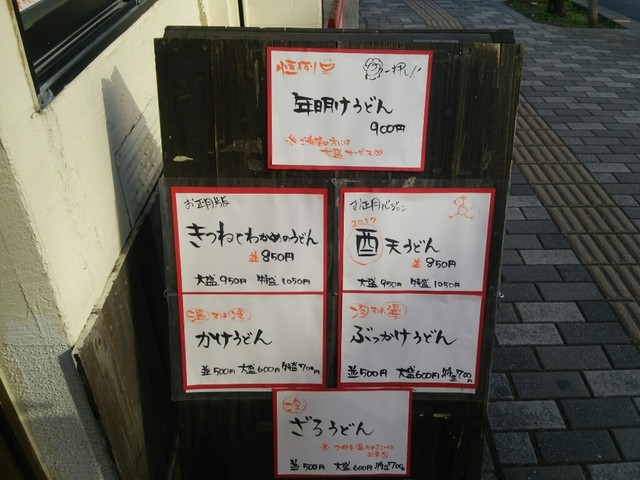 恒例
一押し!!
年明けうどん
900円
※ご希望の方には
大盛サービス
お正月版
きつねとわかめのうどん
並850円
大盛950円 特盛1050円
お正月バージョン
2017
酉天うどん
並850円
大盛950円 特盛1050円
温 又は 冷
かけうどん
並500円 大盛600円 特盛700円
冷 又は 温
ぶっかけうどん
並500円 大盛600円 特盛700円
冷
ざるうどん
並500円 大盛600円 特盛700円